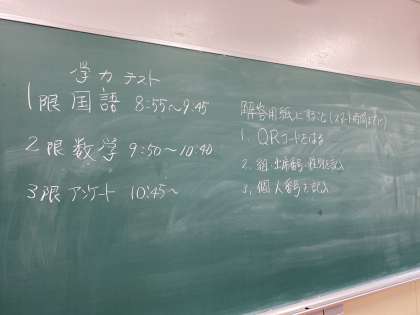 学力テスト
1限 国語 8:55～9:45
2限 数学 9:50～10:40
3限 アンケート 10:45～
解答用紙に
1. QRコードをはる
2. 組・出席番号・性別を記入
3. 個人番号を記入